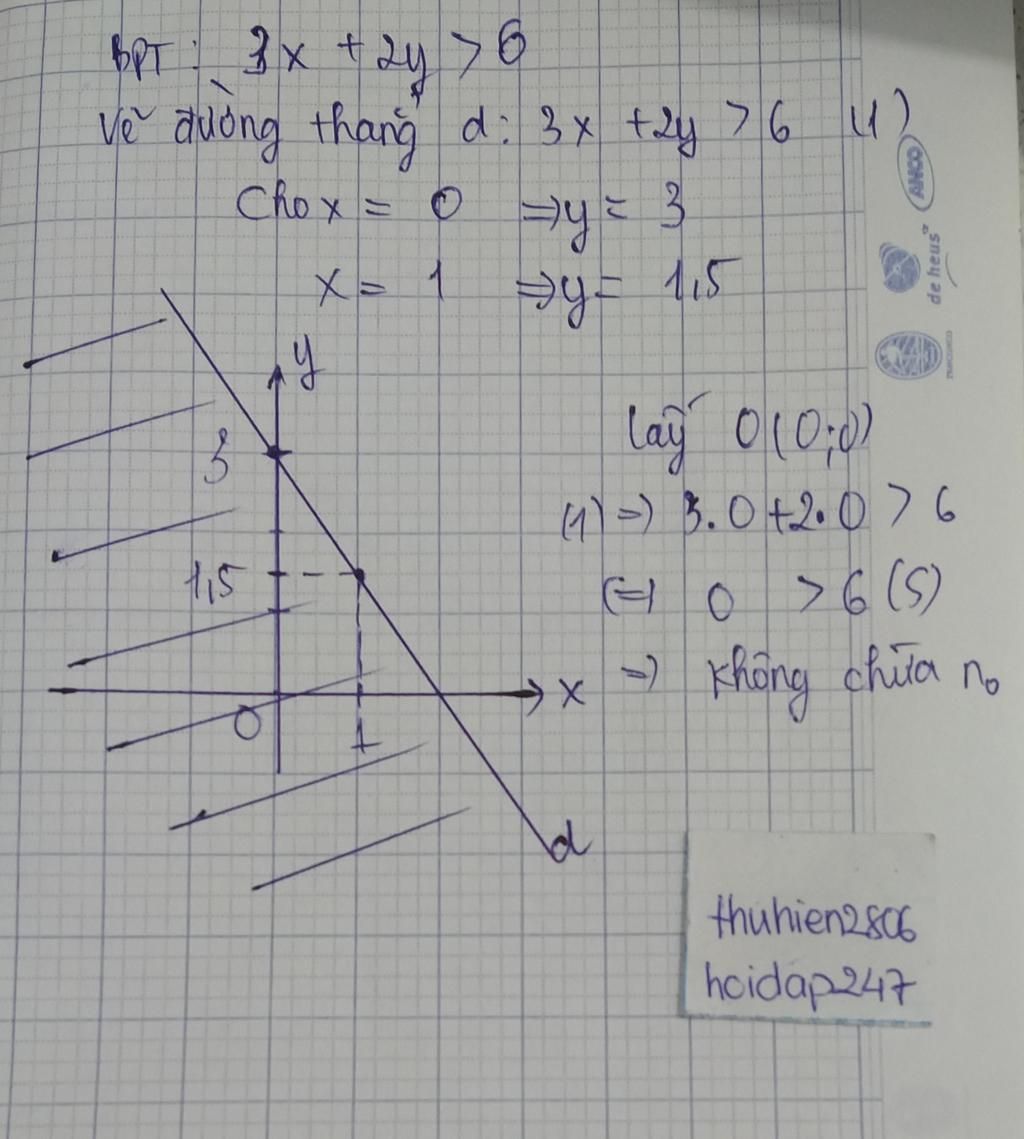 BPT: 3x + 2y > 6
Vẽ đường thẳng d: 3x + 2y > 6 (1)
Cho x = 0 => y = 3
x = 1 => y = 1,5
ANCO
de heus
y
3
1,5
0
1
x
d
lấy O(0;0)
(1) => 3.0 + 2.0 > 6
(=) 0 > 6 (S)
=> không chứa no
thuhien2806
hoidap247